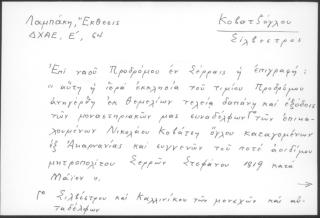 Λαμπάκη, Ἔκθεσις
ΔΧΑΕ, Ε΄, 64
Κοβατζόγλου
Σίλβεστρος
Ἐπὶ ναοῦ Προδρόμου ἐν Σέρραις ἡ ἐπιγραφή:
"αὕτη ἡ ἱερὰ ἐκκλησία τοῦ τιμίου Προδρόμου
ἀνηγέρθη ἐκ θεμελίων τελεία δαπάνη καὶ ἐξόδοις
τῶν μοναστηριακῶν μας συναδέλφων Γ τῶν ἐπικα-
λουμένων Νικολάου Κοβάτζη ὄγλου καταγομένων
ἐξ Ἀκαρνανίας καὶ συγγενῶν τοῦ ποτὲ ἀοιδίμου
μητροπολίτου Σερρῶν Στεφάνου 1819 κατὰ
Μάϊον".
Γ Σιλβέστρου καὶ Καλλινίκου τῶν μοναχῶν καὶ αὐ-
ταδέλφων